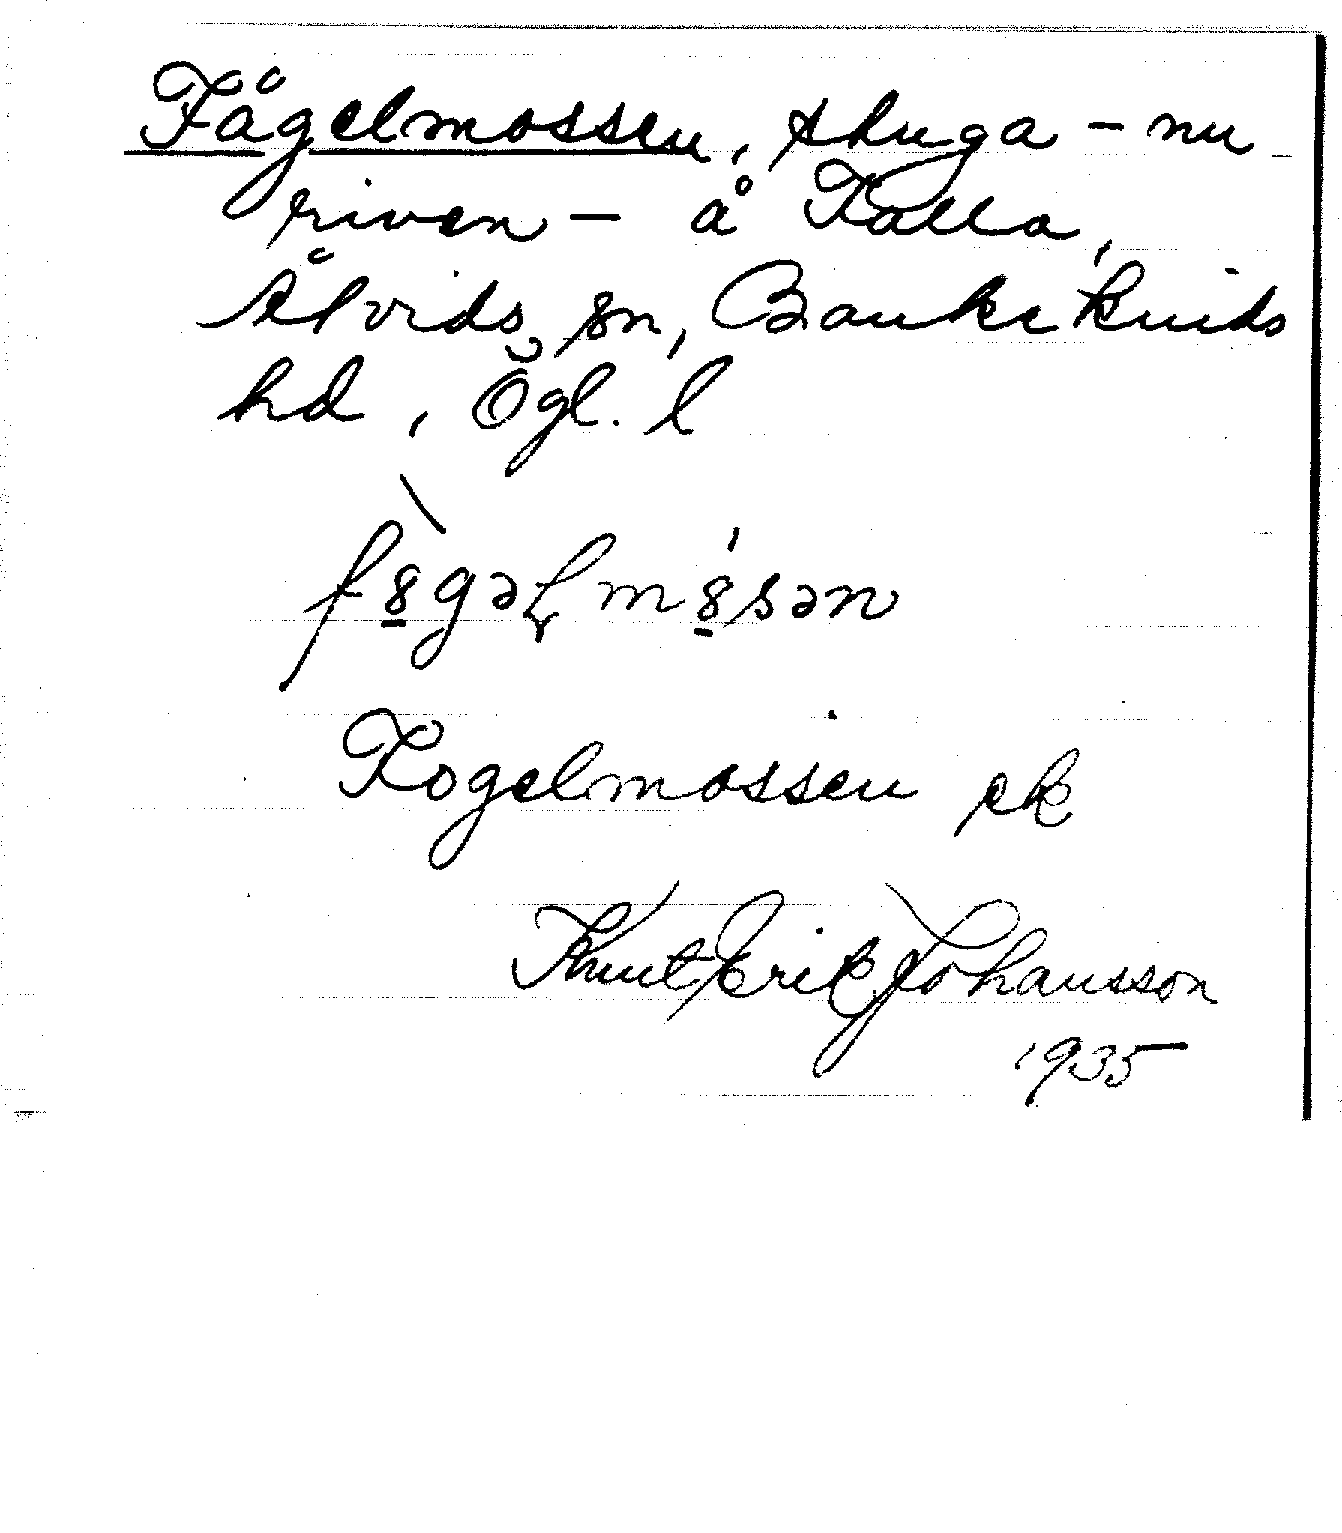 Fågelmossen, stuga – nu
riven – å Falla,
Åtvids sn, Bankekinds
hd, Ögl. l
fògəlmósən
Fogelmossen ek
Knut Erik Johansson
1935